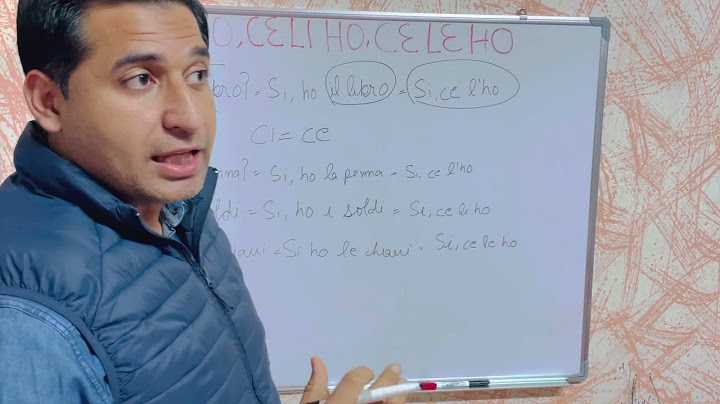 O, CE LI HO, CE LE HO
bro? = Si, ho il libro = Si, ce l'ho
CI = CE
nna? = Si, ho la penna = Si, ce l'ho
ldi = Si, ho i soldi = Si, ce li ho
iavi = Si ho le chiavi = Si, ce le ho